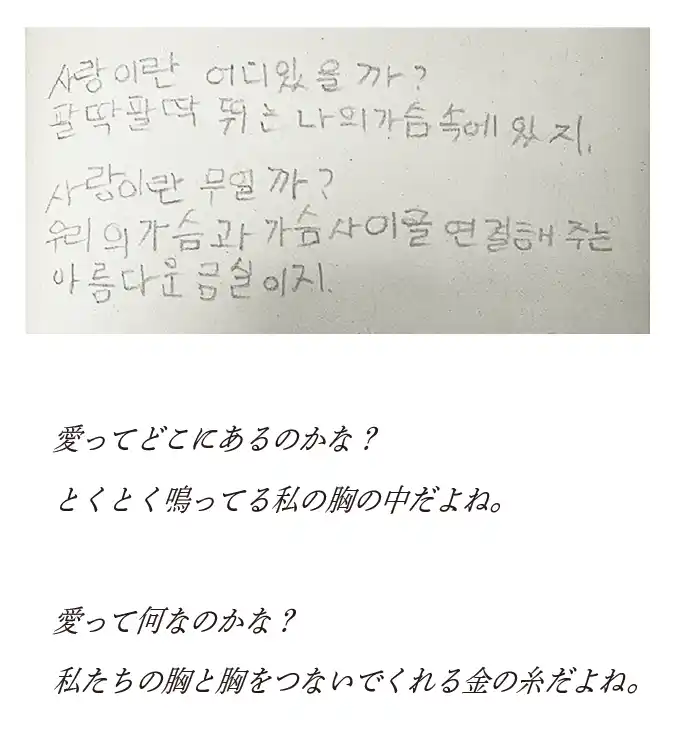 사랑이란 어디있을까?
팔딱팔딱 뛰는 나의가슴속에 있지.
사랑이란 무얼까?
우리의가슴과 가슴사이를 연결해 주는
아름다운 금실이지.
愛ってどこにあるのかな？
とくとく鳴ってる私の胸の中だよね。
愛って何なのかな？
私たちの胸と胸をつないでくれる金の糸だよね。